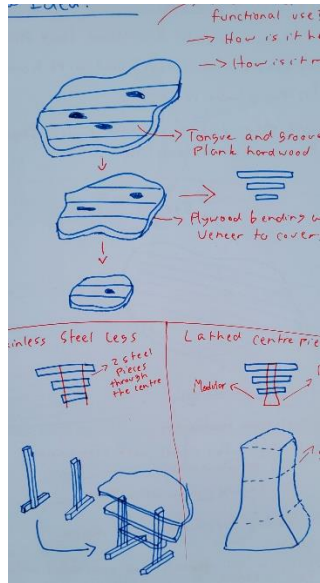 functional use?
→ How is it
→ How is it
→ Tongue and
Plank hardwood
→ Plywood bending
Veneer to cover
Steel Legs
2 Steel
pieces
through
the centre
Lathed Centre
Modular